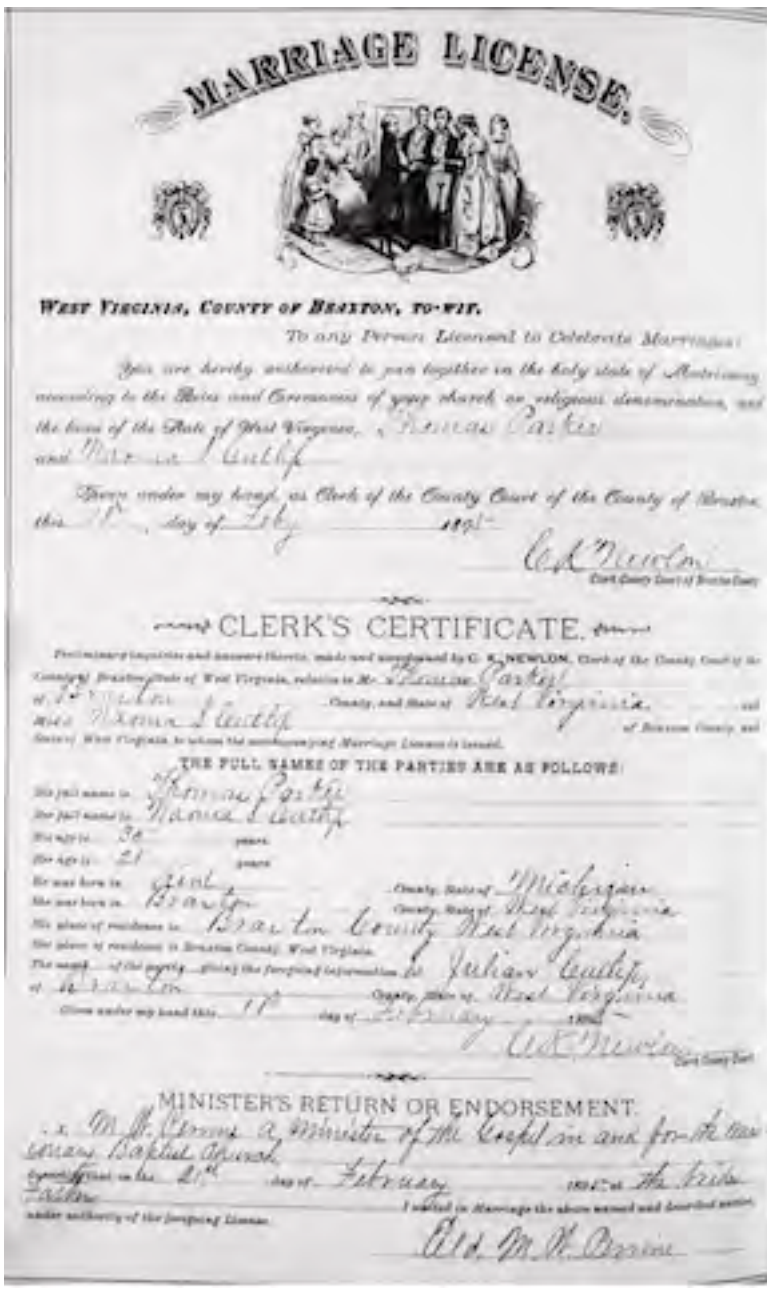 MARRIAGE LICENSE.
WEST VIRGINIA, COUNTY OF BRAXTON, TO-WIT.
To any Person Licensed to Celebrate Marriages:
You are hereby authorized to join together in the holy state of Matrimony
according to the Rites and Ceremonies of your church or religious denomination, and
the laws of the State of West Virginia, Thomas Parker
and Naomi S Cutlip
Given under my hand, as Clerk of the County Court of the County of Braxton,
this day of Feby 189
C K Newlon
Clerk County Court of Braxton County
CLERK'S CERTIFICATE.
Preliminary inquiries and answers thereto, made and ascertained by C. K. NEWLON, Clerk of the County Court of the
County of Braxton, State of West Virginia, relative to Mr. Thomas Parker
of Braxton County, and State of West Virginia and
Miss S Cutlip of Braxton County and
State of West Virginia, to whom the accompanying Marriage License is issued.
THE FULL NAMES OF THE PARTIES ARE AS FOLLOWS:
His full name is Thomas Parker
Her full name is S Cutlip
His age is 30 years.
Her age is 21 years
He was born in County, State of Michigan
She was born in Braxton County, State of West Virginia
His place of residence is Braxton County West Virginia
Her place of residence is Braxton County, West Virginia.
The name of the party giving the foregoing information is Julian Cutlip,
of Braxton County, State of West Virginia
Given under my hand this day of February 189
C K Newlon
Clerk County Court
MINISTER'S RETURN OR ENDORSEMENT.
M. W. a Minister of the Gospel in and for the
Baptist Church
that on the 21st day of February 189 at the bride
Father I united in Marriage the above named and described parties,
under authority of the foregoing License.
Eld. M. W.